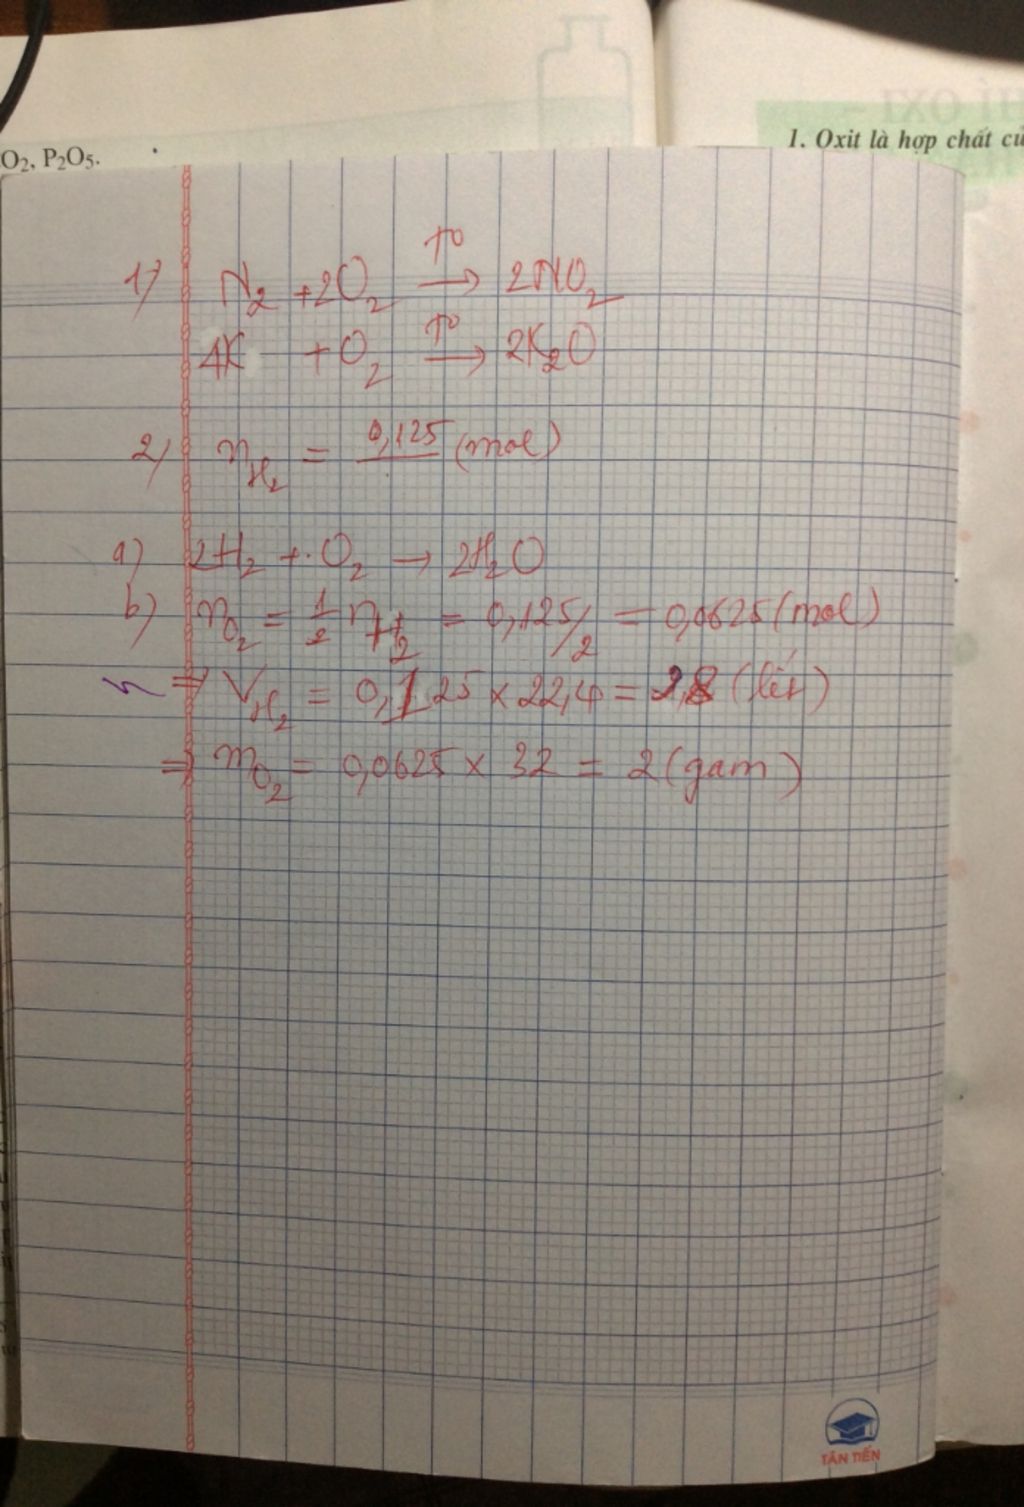 O₂, P₂O₅.
1. Oxit là hợp chất củ
1) N₂ + 2O₂ →(t⁰) 2NO₂
4K + O₂ →(t⁰) 2K₂O
2) n_H₂ = 0,125 (mol)
a) 2H₂ + O₂ → 2H₂O
b) n_O₂ = 1/2 n_H₂ = 0,125/2 = 0,0625 (mol)
⇒ V_H₂ = 0,125 × 22,4 = 2,8 (lít)
⇒ m_O₂ = 0,0625 × 32 = 2 (gam)
TÂN TIẾN